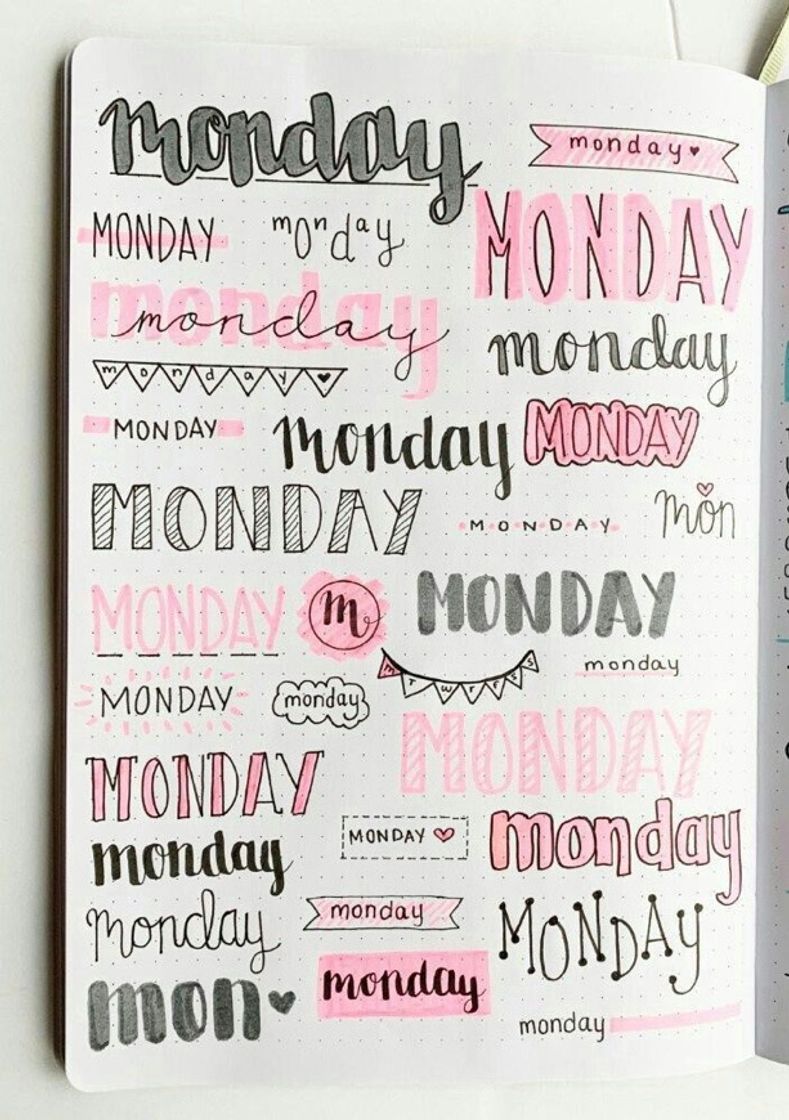 monday
monday
MONDAY
monday
MONDAY
monday
monday
monday
monday
MONDAY
monday
MONDAY
MONDAY
MONDAY
mon
MONDAY
m
MONDAY
M T W T F S S
monday
MONDAY
monday
MONDAY
MONDAY
MONDAY
monday
monday
monday
monday
MONDAY
mon
monday
monday